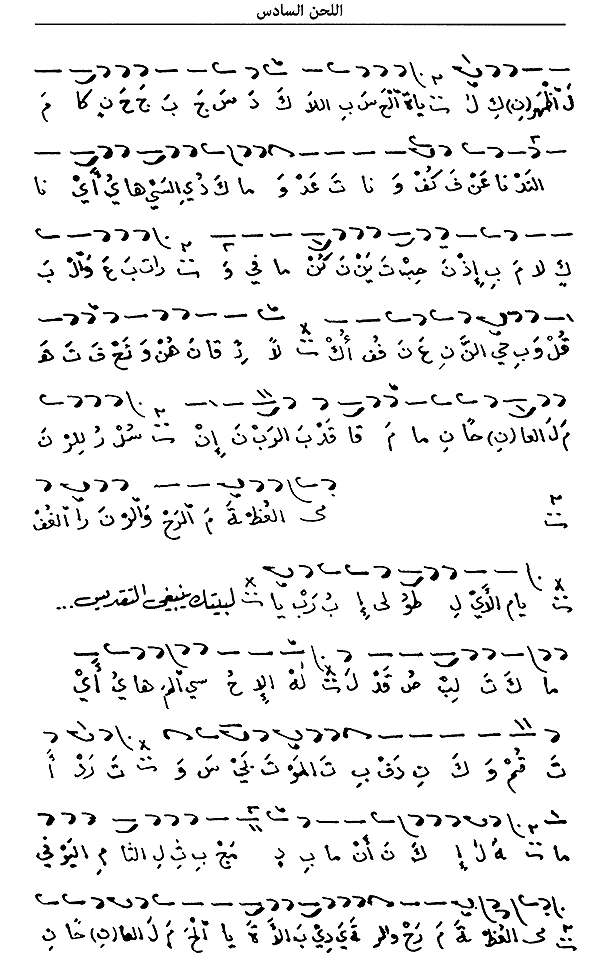 اللحن السادس
لَ أظهر(نِ) كِ لُ ياةَ الْحَ سَ بِ اللاَ كَ دَ سَ جَ بَ جَ حَ نِ كا مَ
التَدْ نا عَنْ فَ كُفْ وَ نا تَ عَدْ وَ ما كَ دُيِ السَيْ هايُ أَيْ نا
كِ لا مَ بِ إِذْ نَ حِبْ تَ يَنْ نَ كُنْ ما في وَ راتِ بَ عَ وَالْ بَ
قُلْ وَ بِ حْيِ النَّ نِ عَ نَ فُفِ أُكْ لاً رِذْ قانَ هُنْ وَ نَعْ فَ تَ هَ
مَ لَ العا(نِ) حَا نِ ما مَ قا قَدْ بَ الرَبْ نَ إِنْ سُلْ رُ لِلرْ نَ
مى العُظْ ةَ مَ الرَحْ وَالرْ نَ رَا الغُفْ
يامِ الأَيْ لِ طُو لى إِ بُ رَبْ يا لبيتك ينبغي التقديس...
ما كَ تَ لِبْ صُ قَدْ لَ لَهْ الإِ حُ سي المْ هايُ أَيْ
تَ قُمْ وَ كَ نِ دَفْ بِ تَ المَوْ تَ بَيْ سَ وَ تَ رَدْ أَ
ما هُ لَ إِ كَ تَ أَنْ ما بِ دِ مَجْ بِ ثِ لِ الثا مِ اليَوْ في
مى العُظْ ةَ مَ رَحْ والر ةَ يَ دِيْ بَ الأَ ةَ يا الْحَ مَ لَ العا(نِ) حَا نِ